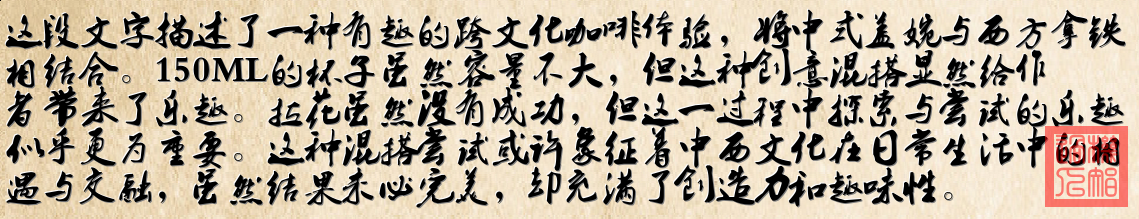 这段文字描述了一种有趣的跨文化咖啡体验，将中式盖婉与西方拿铁
相结合。150ML的杯子虽然容量不大，但这种创意混搭显然给作
者带来了乐趣。拉花虽然没有成功，但这一过程中探索与尝试的乐趣
似乎更为重要。这种混搭尝试或许象征着中西文化在日常生活中的相
遇与交融，虽然结果未必完美，却充满了创造力和趣味性。